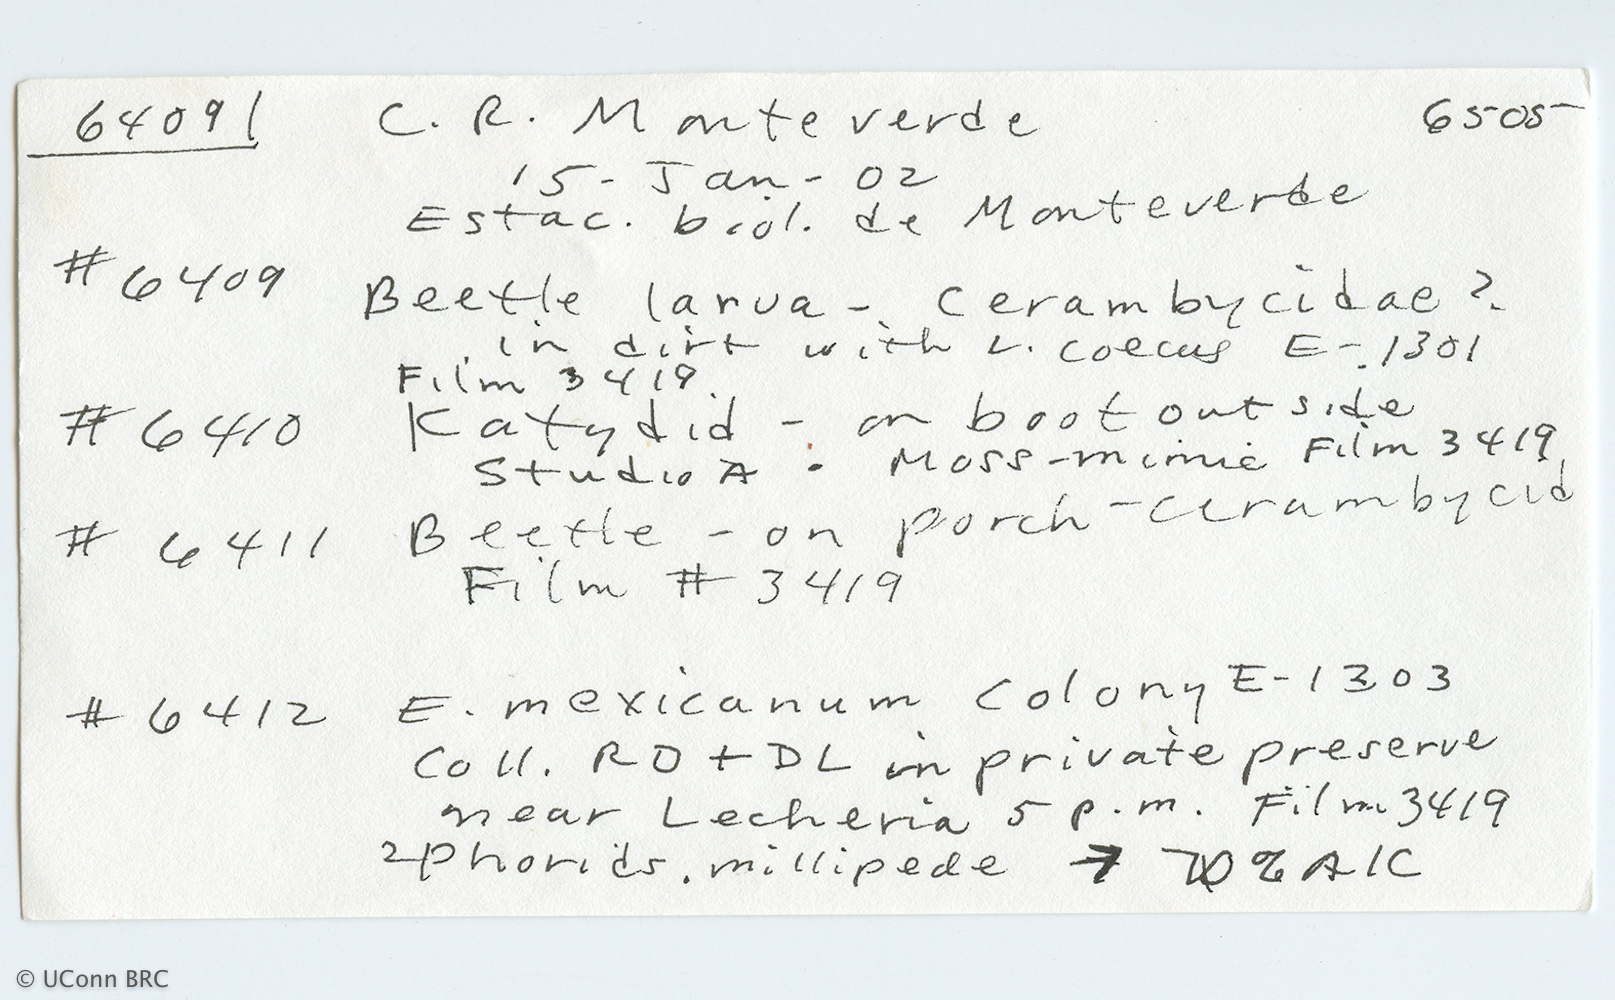 6409 C. R. Monteverde 6505
15-Jan-02
Estac. biol. de Monteverde
#6409 Beetle larva - Cerambycidae?
in dirt with L. coecus E-1301
Film 3419
#6410 Katydid - on boot outside
Studio A. Moss-mimic Film 3419
#6411 Beetle - on porch - cerambycid
Film #3419
#6412 E. mexicanum Colony E-1303
Coll. RO + DL in private preserve
near Lecheria 5 p.m. Film 3419
2 Phorids, millipede → 70% Alc
© UConn BRC